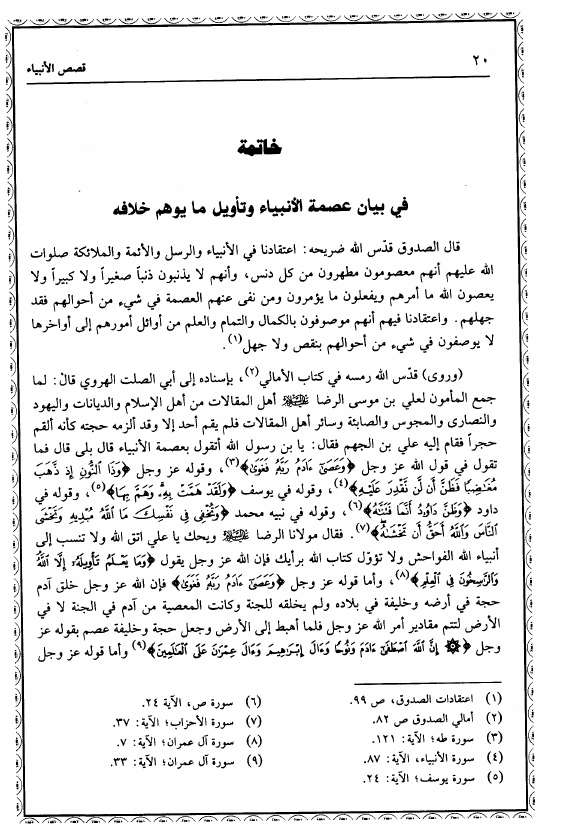 ٢٠
قصص الأنبياء
خاتمة
في بيان عصمة الأنبياء وتأويل ما يوهم خلافه
قال الصدوق قدّس الله ضريحه: اعتقادنا في الأنبياء والرسل والأئمة والملائكة صلوات
الله عليهم أنهم معصومون مطهرون من كل دنس، وأنهم لا يذنبون ذنباً صغيراً ولا كبيراً ولا
يعصون الله ما أمرهم ويفعلون ما يؤمرون ومن نفى عنهم العصمة في شيء من أحوالهم فقد
جهلهم. واعتقادنا فيهم أنهم موصوفون بالكمال والتمام والعلم من أوائل أمورهم إلى أواخرها
لا يوصفون في شيء من أحوالهم بنقص ولا جهل(١).
(وروى) قدّس الله رمسه في كتاب الأمالي(٢)، بإسناده إلى أبي الصلت الهروي قال: لما
جمع المأمون لعلي بن موسى الرضا عليه السلام أهل المقالات من أهل الإسلام والديانات واليهود
والنصارى والمجوس والصابئة وسائر أهل المقالات فلم يقم أحد إلا وقد ألزمه حجته كأنه ألقم
حجراً فقام إليه علي بن الجهم فقال: يا بن رسول الله أتقول بعصمة الأنبياء قال بلى قال فما
تقول في قول الله عز وجل ﴿وَعَصَىٰ ءَادَمُ رَبَّهُ فَغَوَىٰ﴾(٣)، وقوله عز وجل ﴿وَذَا النُّونِ إِذ ذَّهَبَ
مُغَاضِبًا فَظَنَّ أَن لَّن نَّقْدِرَ عَلَيْهِ﴾(٤)، وقوله في يوسف ﴿وَلَقَدْ هَمَّتْ بِهِ وَهَمَّ بِهَا﴾(٥)، وقوله في
داود ﴿وَظَنَّ دَاوُدُ أَنَّمَا فَتَنَّاهُ﴾(٦)، وقوله في نبيه محمد ﴿وَتُخْفِي فِي نَفْسِكَ مَا اللَّهُ مُبْدِيهِ وَتَخْشَى
النَّاسَ وَاللَّهُ أَحَقُّ أَن تَخْشَاهُ﴾(٧). فقال مولانا الرضا عليه السلام ويحك يا علي اتق الله ولا تنسب إلى
أنبياء الله الفواحش ولا تؤوّل كتاب الله برأيك فإن الله عز وجل يقول ﴿وَمَا يَعْلَمُ تَأْوِيلَهُ إِلَّا اللَّهُ
وَالرَّاسِخُونَ فِي الْعِلْمِ﴾(٨)، وأما قوله عز وجل ﴿وَعَصَىٰ ءَادَمُ رَبَّهُ فَغَوَىٰ﴾ فإن الله عز وجل خلق آدم
حجة في أرضه وخليفة في بلاده ولم يخلقه للجنة وكانت المعصية من آدم في الجنة لا في
الأرض لتتم مقادير أمر الله عز وجل فلما أهبط إلى الأرض وجعل حجة وخليفة عصم بقوله عز
وجل ﴿۞ إِنَّ اللَّهَ اصْطَفَىٰ ءَادَمَ وَنُوحًا وَءَالَ إِبْرَاهِيمَ وَءَالَ عِمْرَانَ عَلَى الْعَالَمِينَ﴾(٩) وأما قوله عز وجل
(١) اعتقادات الصدوق، ص ٩٩.
(٢) أمالي الصدوق ص ٨٢.
(٣) سورة طه؛ الآية: ١٢١.
(٤) سورة الأنبياء، الآية: ٨٧.
(٥) سورة يوسف؛ الآية: ٢٤.
(٦) سورة ص، الآية ٢٤.
(٧) سورة الأحزاب؛ الآية: ٣٧.
(٨) سورة آل عمران؛ الآية: ٧.
(٩) سورة آل عمران؛ الآية: ٣٣.